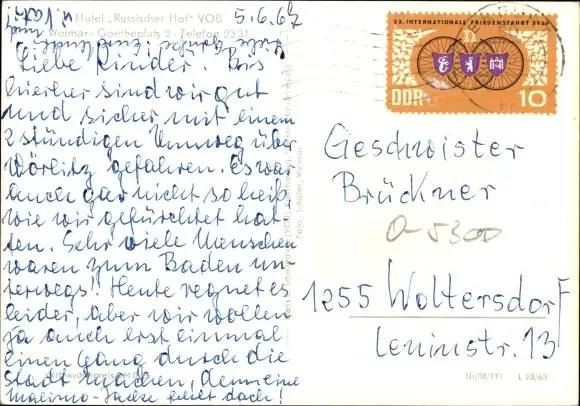 Hotel „Russischer Hof" VOB
Weimar - Goetheplatz 2 - Telefon 23 31
5.6.67
Liebe Kinder! Bis
hierher sind wir gut
und sicher mit einem
2 stündigen Umweg über
Wörlitz gefahren. Es war
auch gar nicht so heiß,
wie wir gefürchtet hat-
ten. Sehr viele Menschen
waren zum Baden un-
terwegs! Heute regnet es
leider, aber wir wollen
ja auch erst einmal
einen Gang durch die
Stadt machen, denn eine
Malimo-Jacke fehlt doch!
Foto: Schäfer, Weimar
XX. INTERNATIONALE FRIEDENSFAHRT 1967
DDR
10
Geschwister
Brückner
a-5300
1255 Woltersdorf
Leninstr. 13
III/18/117 L 23/63